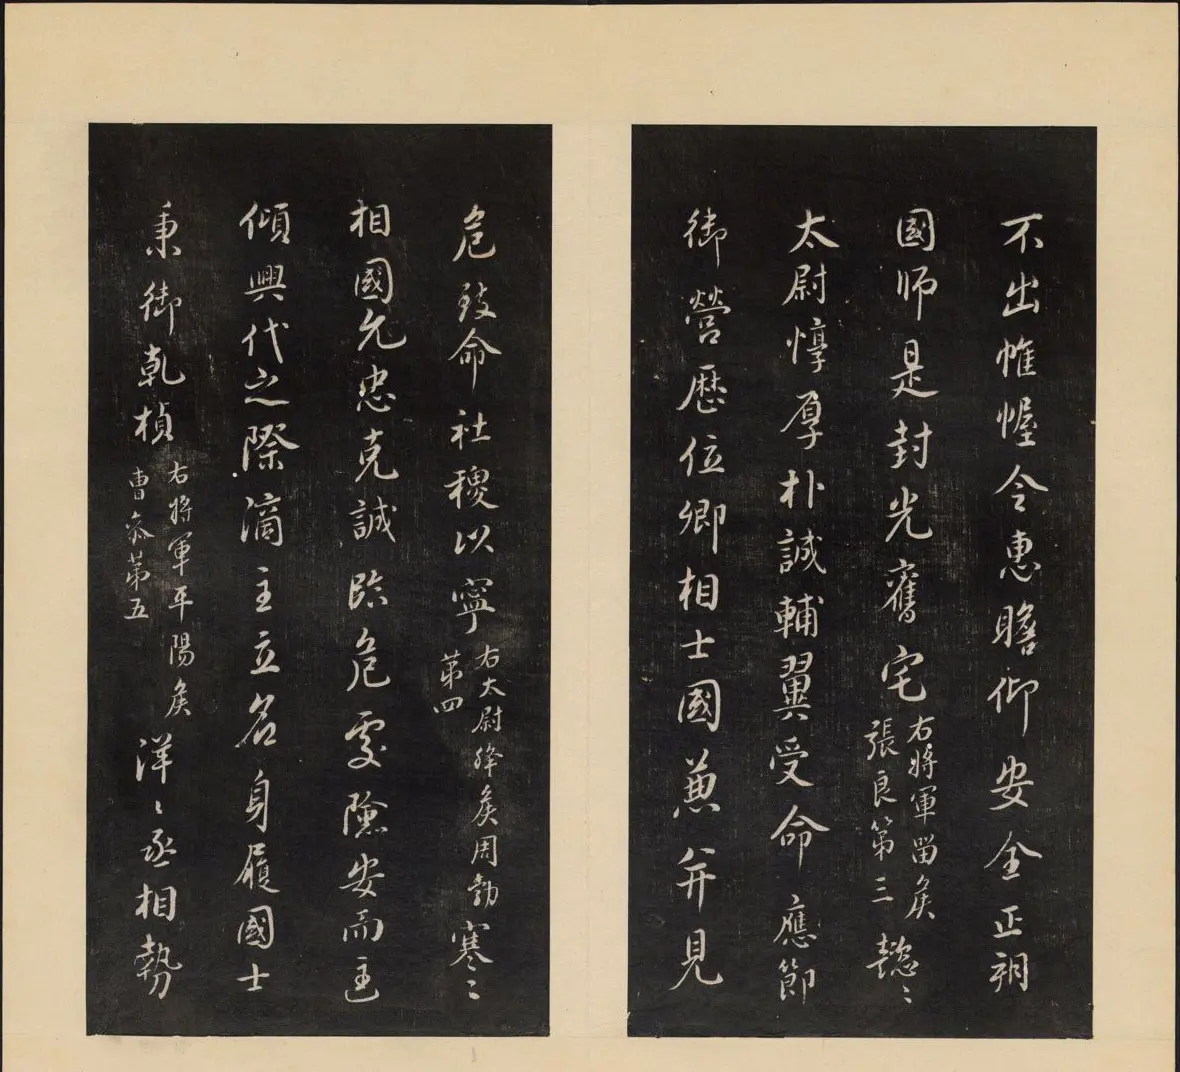 不出帷幄令惠瞻仰安全正朔
國師是封光舊宅右將軍留矦張良第三懿〻
太尉惇厚朴誠輔翼受命應節
御營歷位卿相士國兼并見
危致命社稷以寧右太尉絳矦周勃第四蹇〻
相國允忠克誠臨危處險安而匡
傾興代之際濟主立名身履國士
秉御乾楨右將軍平陽矦曹參第五洋〻丞相勢